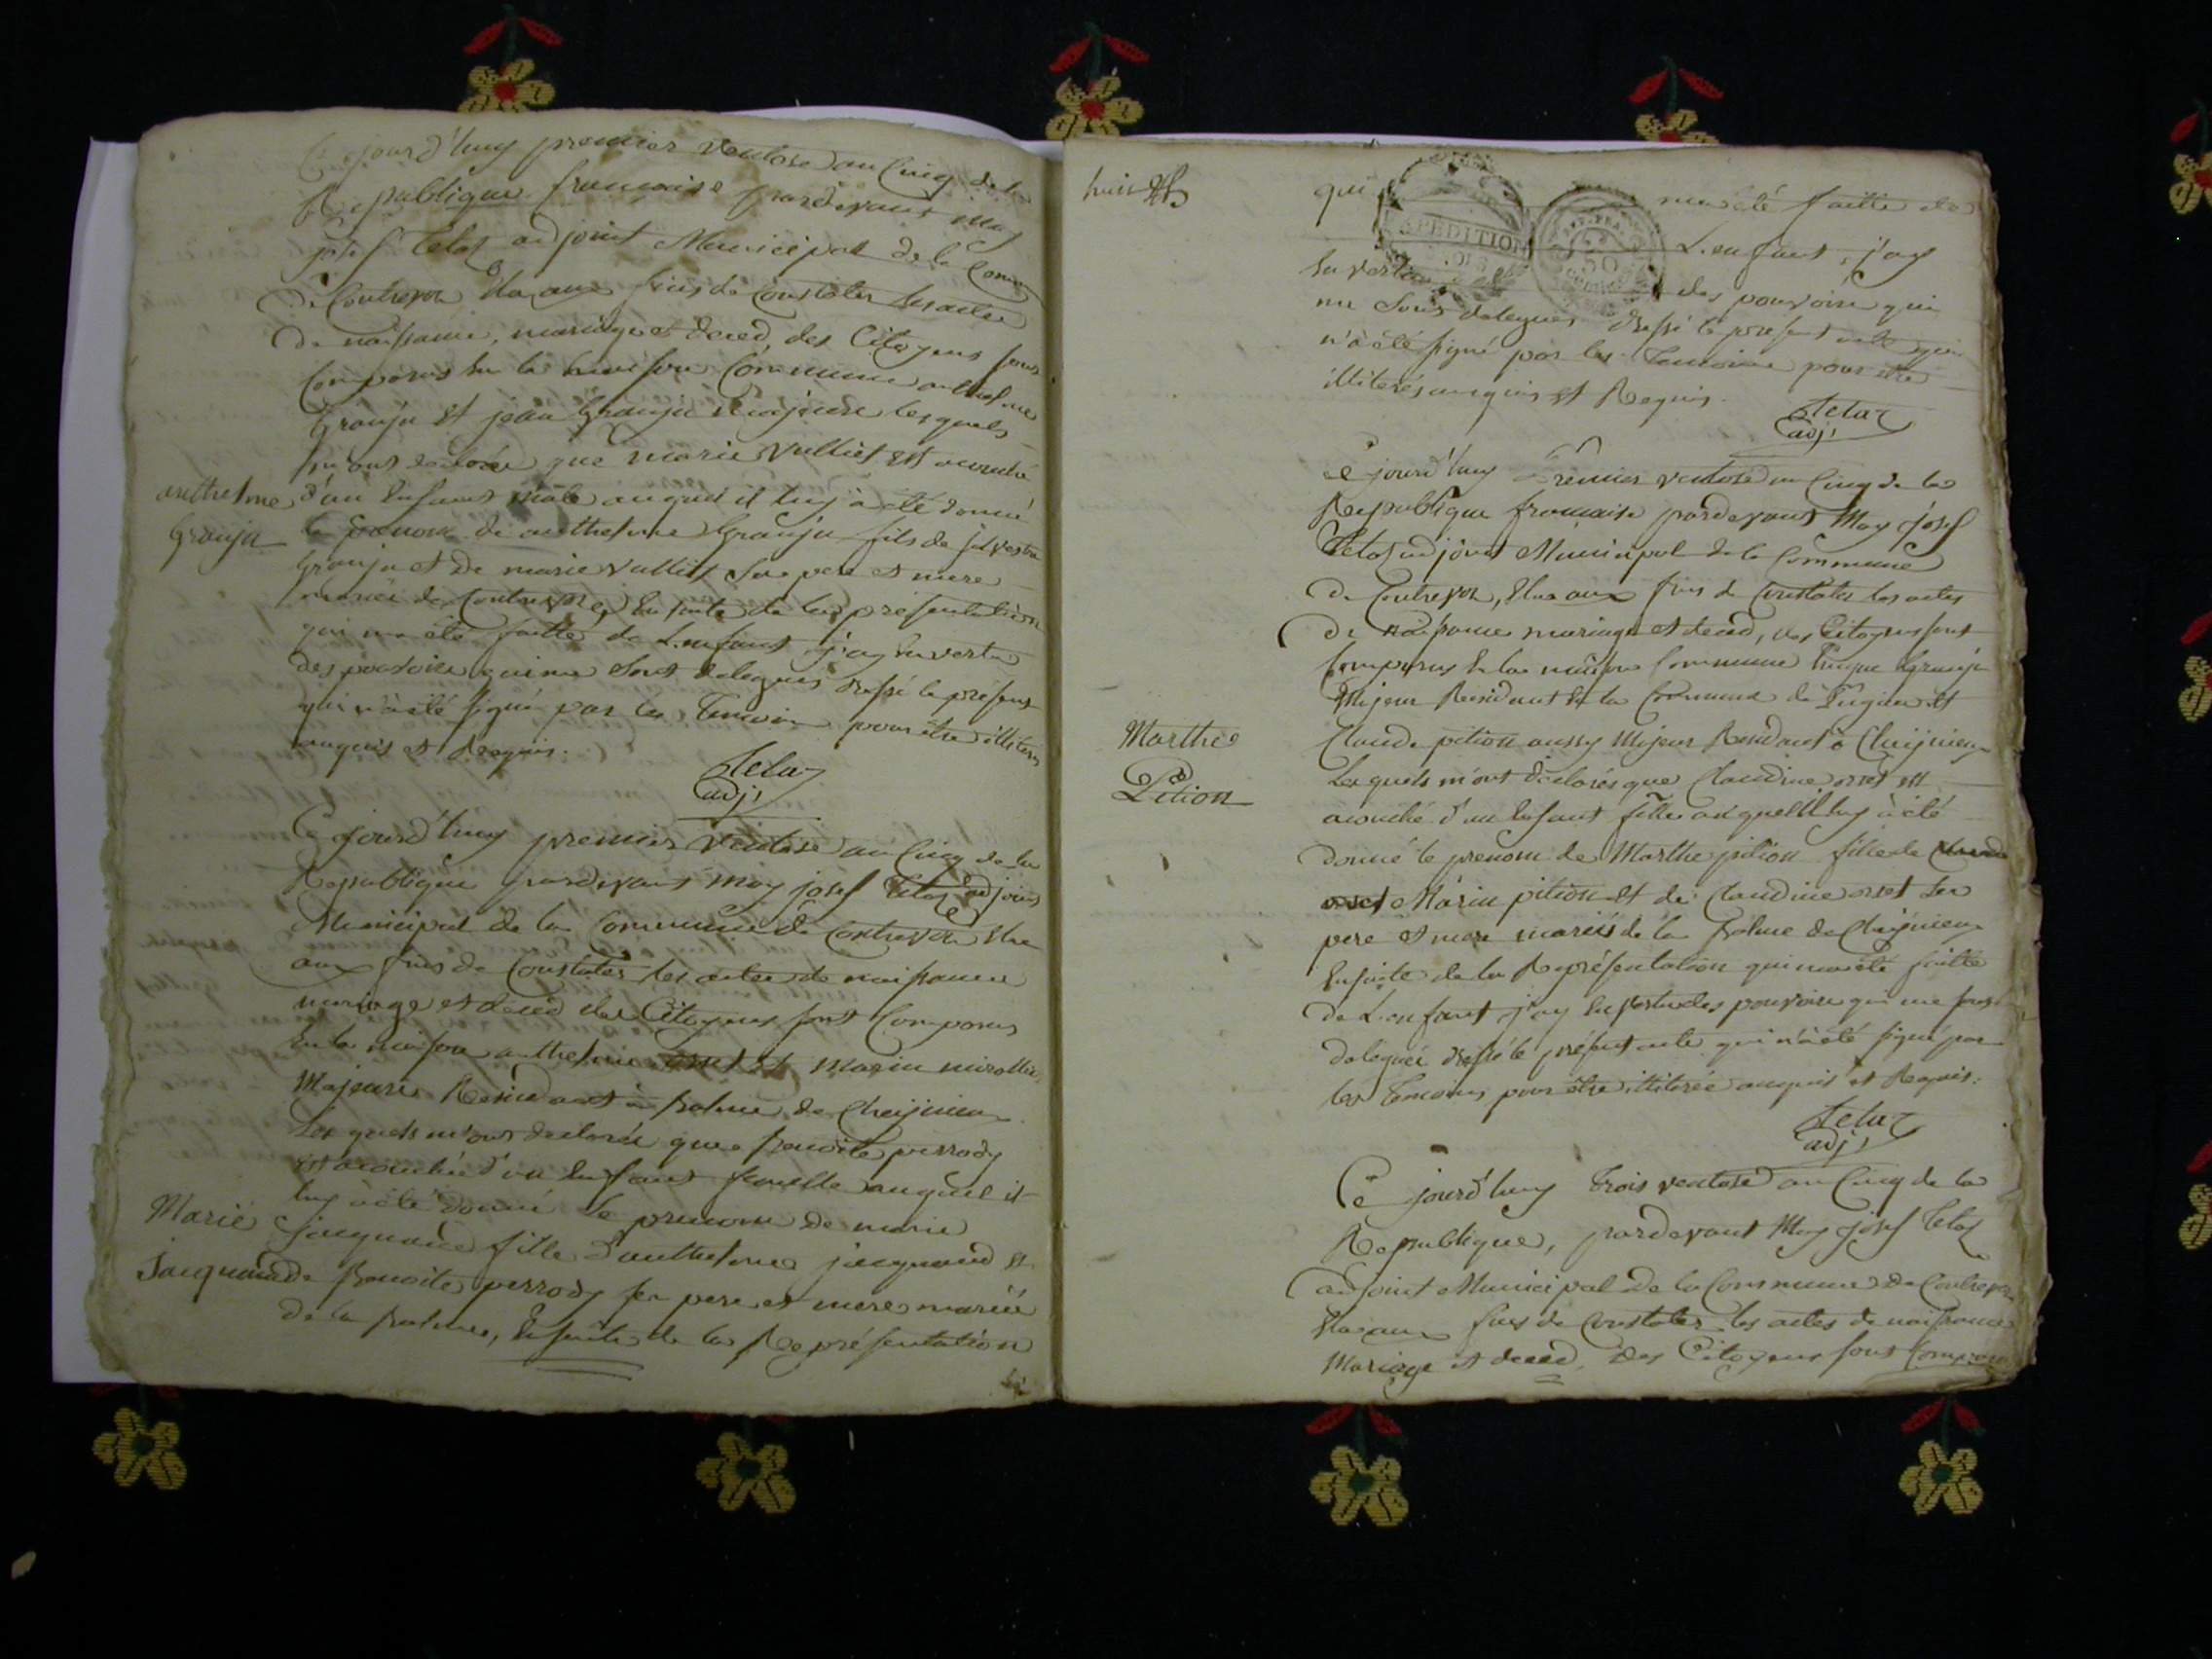 Ce jourd'huy premier ventose an Cinq de la
Republique francaise pardevant moy
josef Telaz adjoint Municipal de la Comm
De Contrevoz Elu aux fins de Constater les actes
De naissance, mariage et deced, des Citoyens sont
Comparus en la maison Commune anthelme
Granju et jean Granju majeurs lesquels
m'ont declarée que marie Vulliet est acouché
anthelme Granju
d'un Enfant mâle auquel il luy à été donné
le prenom de anthelme Granju fils de silvestre
Granju et De marie Vulliet Ses pere et mere
mariés de Contrevoz, Ensuite de la présentation
qui ma été faitte de L'enfant j'ay En vertu
des pouvoirs qui me sont delegués dressé le présent
qui n'a été signé par les Temoins pour être illiterés
anquis et Requis.
Telaz
adj!
Ce jourd'huy premier Ventose an Cinq de la
Republique pardevant moy josef Telaz adjoint
Municipal de la Commune de Contrevoz Elu
aux fins de Constater les actes de naissance
mariage et deced des Citoyens sont Comparus
En la maison anthelme et marin
Majeurs Residant à palme de Cheijnieu
Les quels m'ont declarée que benoite perrody
est acouchée d'un Enfant femelle auquel il
luy à été donné le prenom de marie
Marie Jacquand
jacquand fille d'anthelme jacquand et
De benoite perrody ses pere et mere mariés
de la palme, Ensuite de la Representation
huit
qui ma été faitte de
L'enfant j'ay
En vertu des pouvoirs qui
me sont delegués dressé le present acte qui
n'a été signé par les Temoins pour etre
illiterés anquis et Requis.
Telaz
adj!
Ce jourd'huy Premier ventose an Cinq de la
Republique francaise pardevant Moy josef
Telaz adjoint Municipal de la Commune
De Contrevoz, Elu aux fins de Constater les actes
De naissance mariage et deced, des Citoyens sont
Comparus En la maison Commune
Majeur Residant En la Commune de Pugieu et
Marthe Pition
Claude pition aussy Majeur Residant à Cheijnieu
Lesquels m'ont déclarés que Claudine orset est
acouché d'un Enfant fille auquel il luy à été
donné le prenom de Marthe pition fille de
Marin pition Et de Claudine orset Ses
pere et mere mariés de la palme de Cheijnieu
Ensuite de la Représentation qui ma été faitte
De L'enfant j'ay En vertu des pouvoirs qui me sont
delegués dressé le présent acte qui n'a été signé par
les Temoins pour être illiterés anquis et Requis.
Telaz
adj!
Ce jourd'huy Trois ventose an Cinq de la
Republique, pardevant Moy josef Telaz
adjoint Municipal de la Commune de Contrevoz
Elu aux fins de Constater les actes de naissance
Mariage et deced, des Citoyens sont Comparus